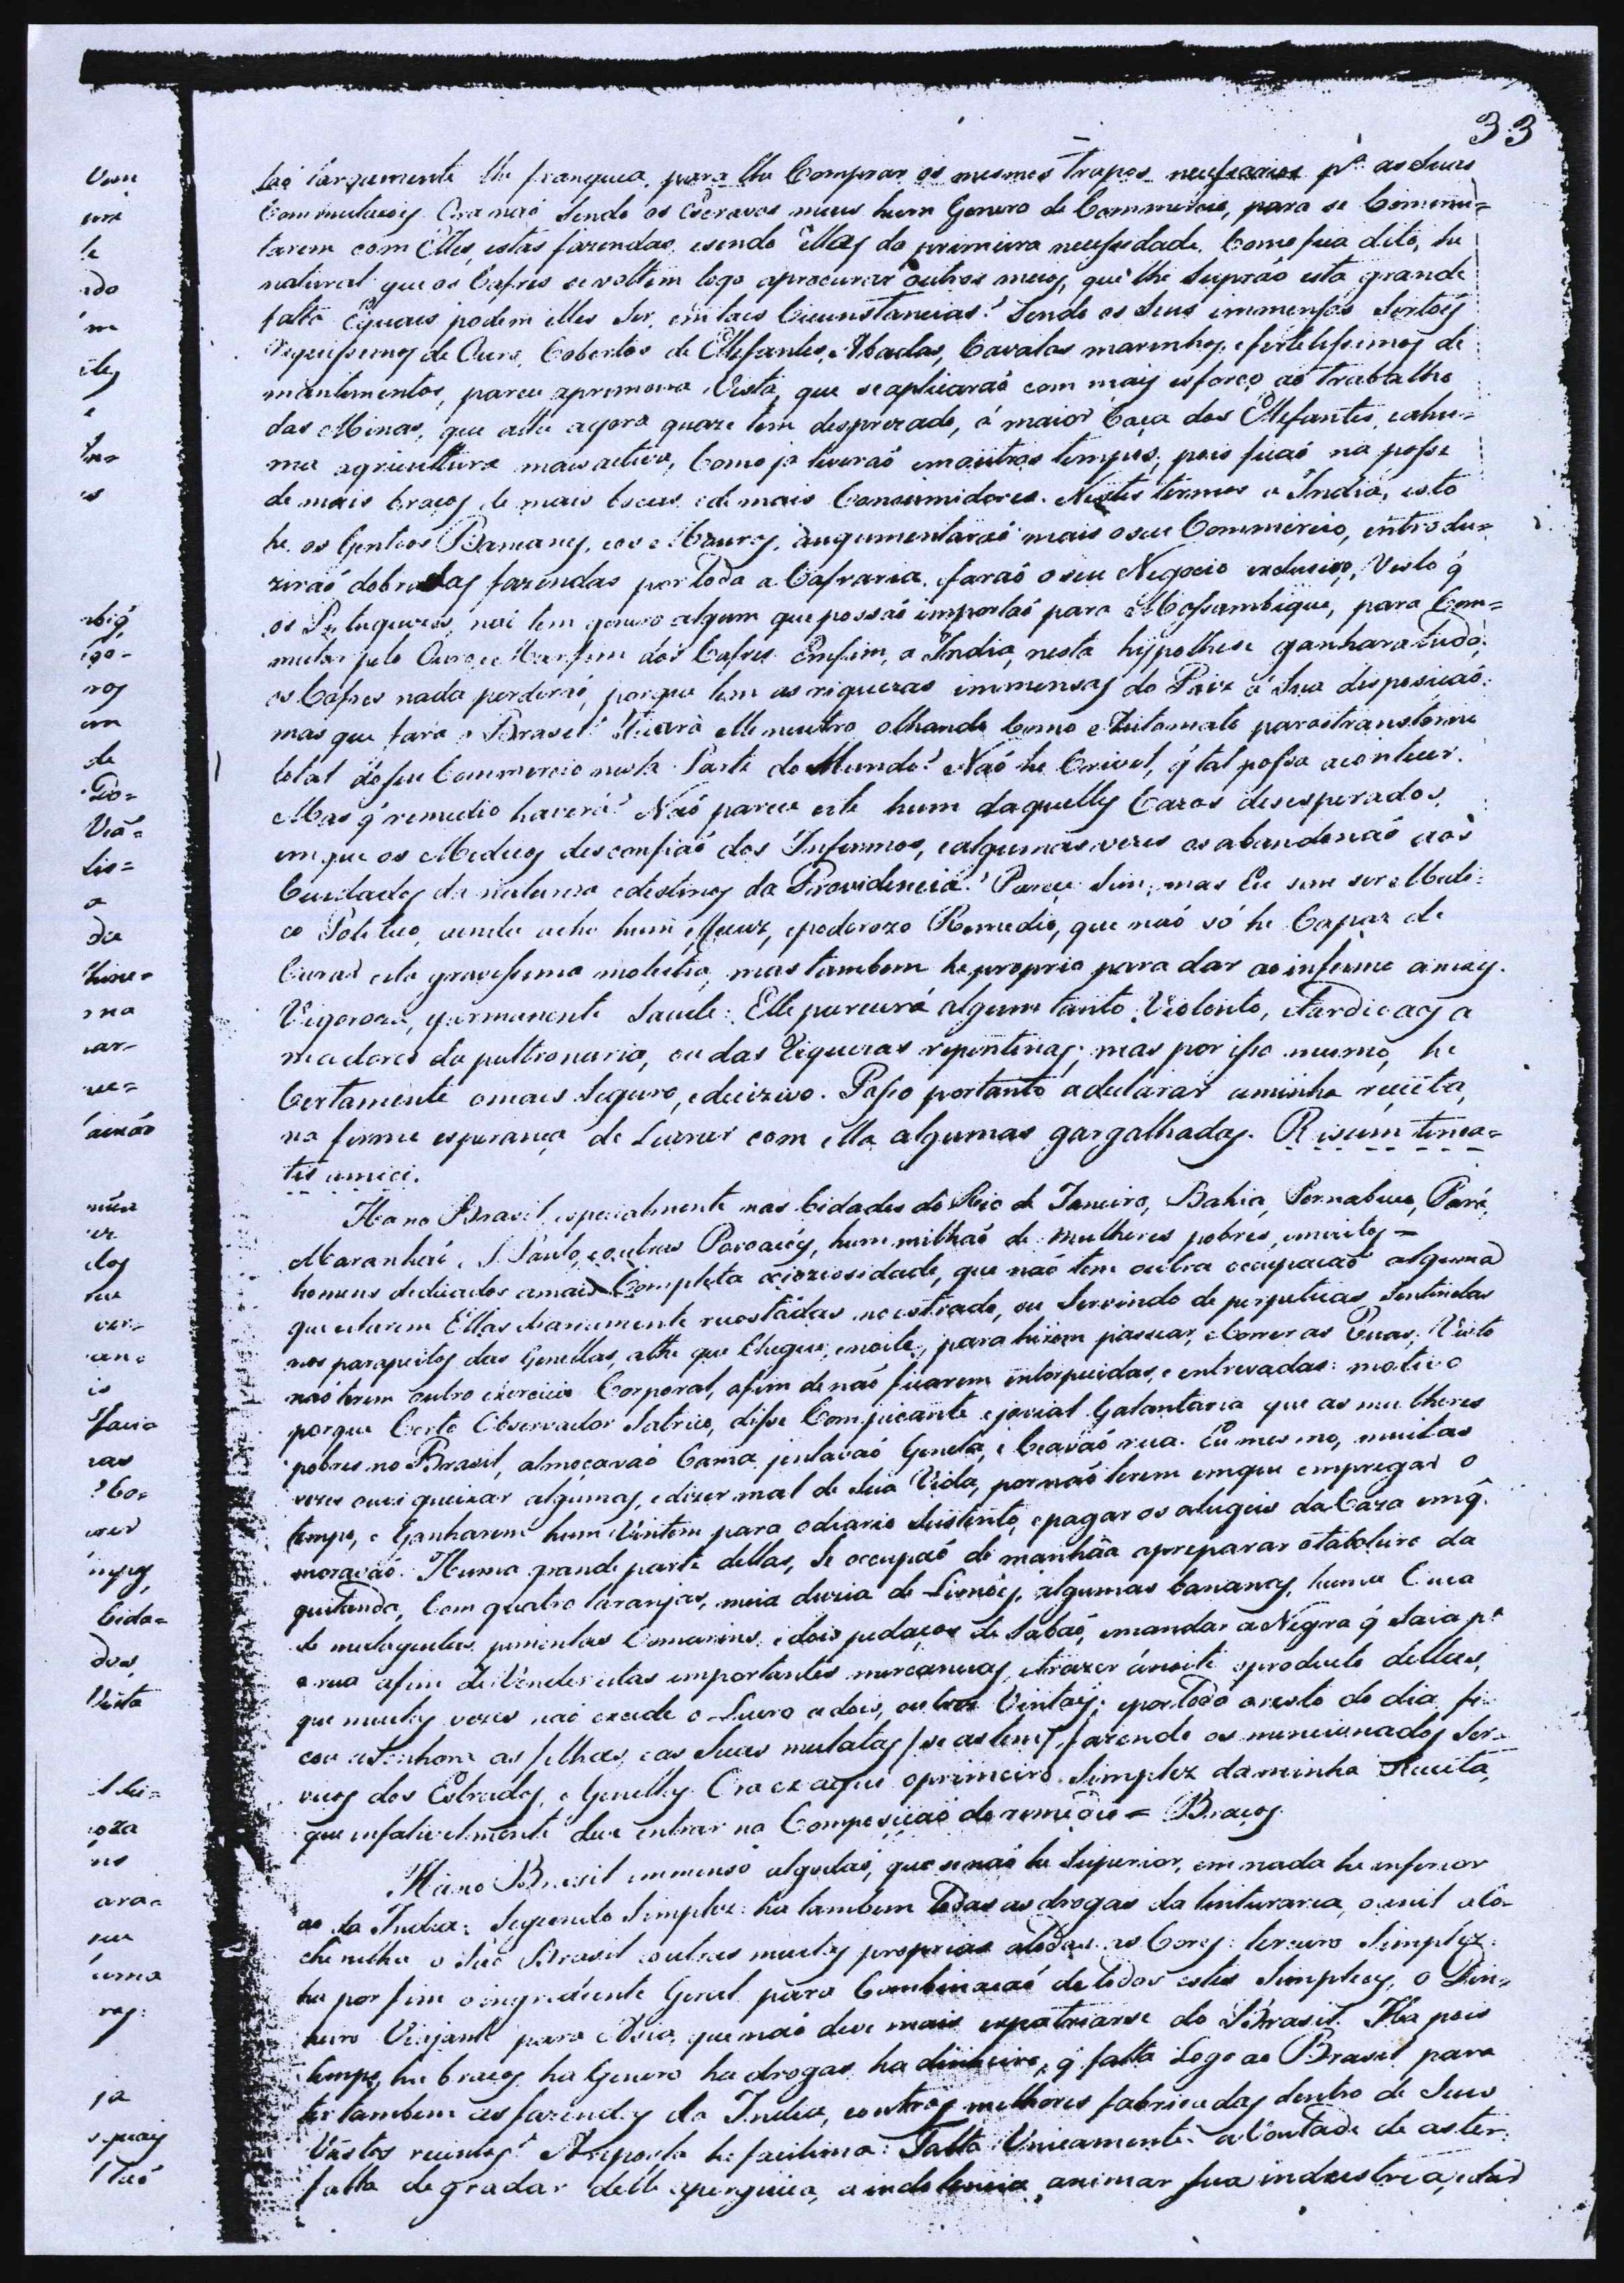 33
taõ largamente lhe franquea, para lhe Comprar os mesmos trapos necessarios p.ª as Suas
Commutaçoiz. Ora naó sendo os Escravos mais hum Genero de Commercio, para se Commu=
tarem com Elles, estas fazendas, e sendo ellas da primeira necessidade, Como fica dito, he
natural que os Cafres se voltem logo aprocurar outros meios, que lhe Supraõ esta grande
falta. Equaes podem elles Ser, em taes Circunstancias? Sendo os Seus immensos Sertoẽs
riquissimos de Ouro, Cobertos de Ellefantes, Abadas, Cavalos marinhos, e fertelissimos de
mantimentos, parece aprimeira Vista, que se aplicaraó com mais esforço ao trabalho
das Minas, que athe agora quaze tem desprezado, á maior Caça dos Ellefantes, e a hu=
ma agricultura mais activa, Como já tiveraó em outros tempos, pois ficaó na posse
de mais braços, de mais bocas, e de mais Consumidores. Nestes termos a India, isto
he, os Gentios Bameanes, e os Mouros, augumentaraó mais o seu Commercio, introdu=
ziraó dobradas fazendas por toda a Cafraria, e faraó o seu Negocio exclusivo, Visto q̃
os Portuguezes, naó tem genero algum que possaó importar para Mossambique, para Com=
mutar pelo Ouro, e Marfim dos Cafres. Emfim, a India, nesta hypothese ganhara tudo;
os Cafres nada perderaó, porque tem as riquezas immensas do Paiz á Sua disposiçaó:
mas que fará o Brasil? Ficará elle neutro olhando Como Automato para o transtorno
total do seu Commercio nesta Parte do Mundo? Naó he Crivel, q̃ tal possa acontecer.
Mas q̃ remedio haverá? Naó parece este hum daquelles Cazos desesperados,
em que os Medicos desconfiaó dos Infermos, e algumas vezes os abandonaó aos
Cuidados da natureza e destinos da Providencia? Parece Sim; mas Eu sem ser Medi=
co Politico, ainda acho hum efficaz, e poderozo Remedio, que naó só he Capaz de
Curar esta gravissima molestia, mas tambem he proprio para dar ao infermo a mais
Vigoroza, e permanente Saude. Elle parecerá algum tanto Violento, e tardio aos a
madores da pultronaria, ou das riquezas repentinas; mas por isso mesmo, he
Certamente o mais Seguro, e decizivo. Passo portanto a declarar a minha receita,
na firme esperança de Lucrar com ella algumas gargalhadas. Risum tinea=
tis amici.
Ha no Brasil, especialmente nas Cidades do Rio de Janeiro, Bahia, Pernabuco, Pará,
Maranhaó, S. Paulo, e outras Povoaçoẽs, hum milhaõ de mulheres pobres, e muitos =
homens dedicados a mais Completa ocioziosidade, que naõ tem outra occupaçaó alguma
que estarem Ellas diariamente recostadas no estrado, ou Servindo de perpetuas Sentinelas
nos parapeitos das Genellas, athe que Chegue, a noite, para hirem passear, e Correr as Ruas, Visto
naó terem outro exercicio Corporal, afim de naõ ficarem intorpecidas, e entrevadas: motivo
porque Certo Observador Satirico, disse Com picante e jovial Galantaria que as mulheres
pobres no Brasil, almoçavaó Cama, jentavaó Genela, e Ceavaó rua. Eu mesmo, muitas
vezes ouvi queixar algumas, e dizer mal de Sua Vida, por naõ terem em que empregar o
tempo, e Ganharem hum Vintem para o diario Sustento, e pagar os alugeis da Caza em q̃
moravaó. Huma grande parte dellas, Se occupaó de manhãa apreparar o taboleiro da
quitanda, Com quatro laranjas, meia duzia de Limoẽs, algumas bananas, huma Cuca
de malaguetas, pimentas Comarins, e dois pedaços de Sabaõ, e mandar a Negra q̃ Saia p.ª
a rua afim de Vender estas importantes mercancias, e trazer á noite o producto dellas,
que muitas vezes naó excede o Lucro a dois, ou tres Vintens; e por todo o resto do dia, fi=
ca a Senhora as filhas, e as Suas mulatas / se as tem / fazendo os mencionados Ser=
viços dos Estrados, e Genellas. Ora ex aqui o primeiro Simplez da minha Receita,
que infalivelmente deve entrar na Composiçaó do remedio = Braços
Ha no Brasil immenso algodaó, que se naó he Superior, em nada he inferior
ao da India: Segundo Simplez: ha tambem todas as drogas da tinturaria, o anil a Co=
chenilha o páo Brasil e outras muitas proprias a todas as Cores: terceiro Simplez:
ha por fim o ingrediente Geral para Combinaçaó de todos estes Simplices, o Din=
heiro Viajante para Asia, que naó deve mais expatriarse do Brasil. Ha pois
tempo, ha braços ha Genero ha drogas ha dinheiro, q̃ falta Logo ao Brasil para
ter tambem as fazendas da India, e outras melhores fabricadas dentro de Seus
Vastos recintos? A reposta he facilima: Falta Unicamente a Vontade de as ter:
falta degradar delle aperguiça, a indolencia, animar sua industria, e dar